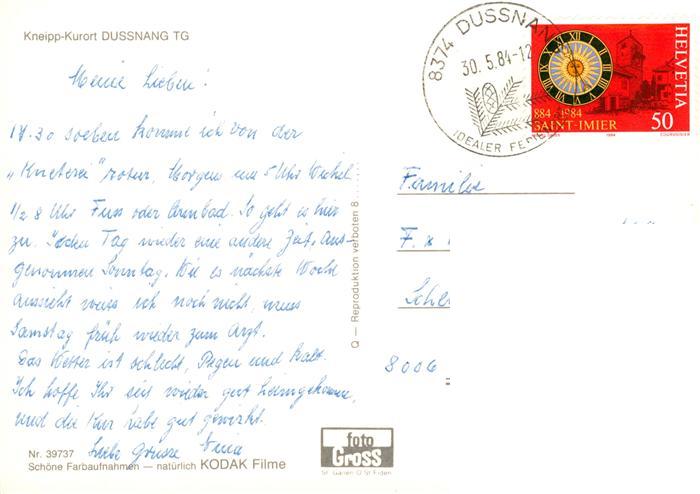 Kneipp-Kurort DUSSNANG TG
Meine Lieben!
17.30 soeben komme ich von der
„Kneterei" retour. Morgens um 5 Uhr Wickel
1/2 8 Uhr Fuss oder Armbad. So geht es hier
zu. Jeden Tag wieder eine andere Zeit, Aus-
genommen Sonntag. Wie es nächste Woche
aussieht weiss ich noch nicht, muss
Samstag früh wieder zum Arzt.
Das Wetter ist schlecht, Regen und kalt.
Ich hoffe Ihr seit wieder gut heimgekommen,
und die Kur habe gut gewirkt.
Liebe Grüsse
Nr. 39737
Schöne Farbaufnahmen — natürlich KODAK Filme
Q — Reproduktion verboten 8
foto
Gross
St. Gallen O St. Fiden
8374 DUSSNANG
30.5.84-12
IDEALER FERIE
HELVETIA
884-1984
SAINT-IMIER
50
1984
COURVOISIER
Familie
F.
8006